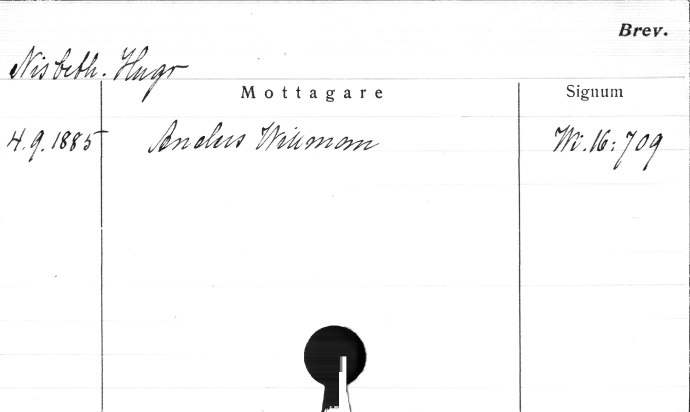 Brev.
Nisbeth. Hugo
Mottagare Signum
4.9.1885 Anders Willmann Wi.16:709